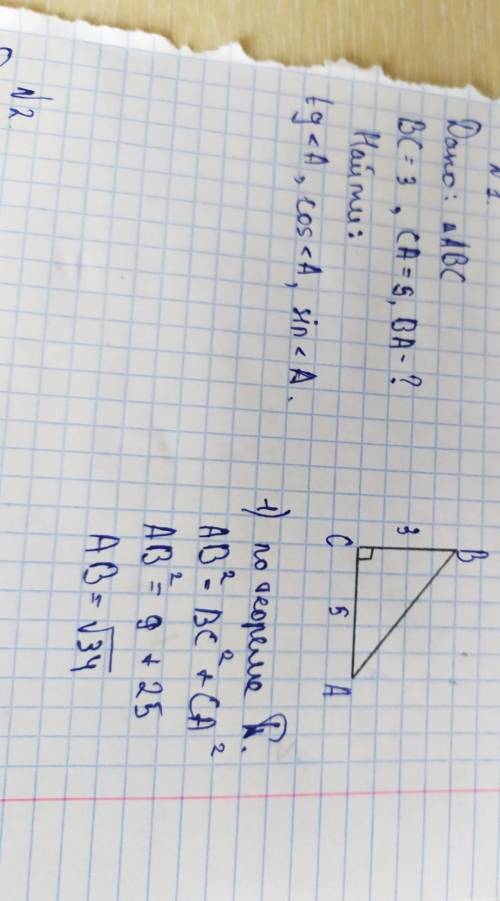 N 1.
Дано: ▵ABC
BC = 3, CA = 5, BA - ?
Найти:
tg < A, cos < A, sin < A.
B
3
C
5
A
1) по теореме П.
AB² = BC² + CA²
AB² = 9 + 25
AB = √34
N 2